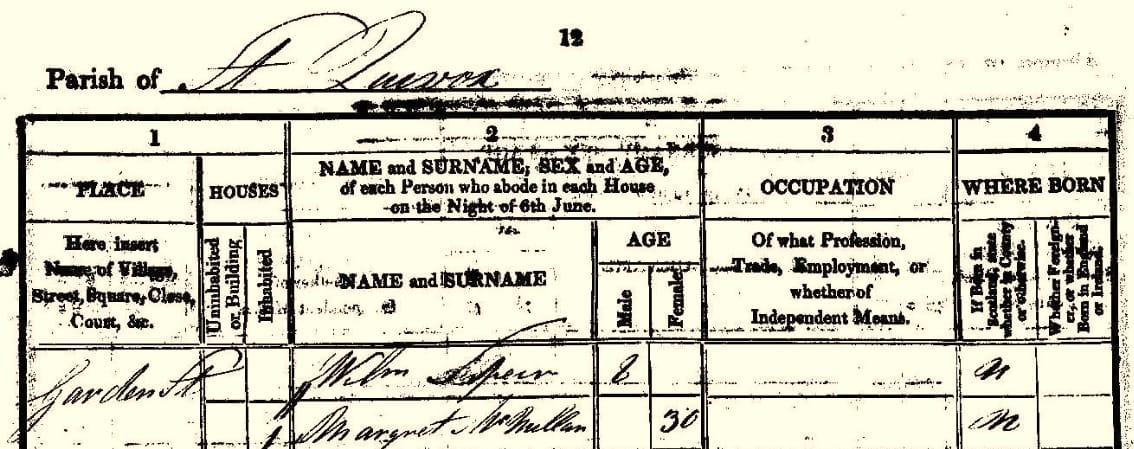 12
Parish of St Quivox
1 2 3 4
PLACE HOUSES NAME and SURNAME, SEX and AGE, of each Person who abode in each House on the Night of 6th June. OCCUPATION WHERE BORN
Here insert Name of Village, Street, Square, Close, Court, &c.
Uninhabited or Building
Inhabited
NAME and SURNAME
AGE
Male
Female
Of what Profession, Trade, Employment, or whether of Independent Means.
If Born in Scotland, state whether in County or otherwise.
Whether Foreigner, or whether Born in England or Ireland.
Garden St Wm 2 n
1 Margret McMillan 30 n